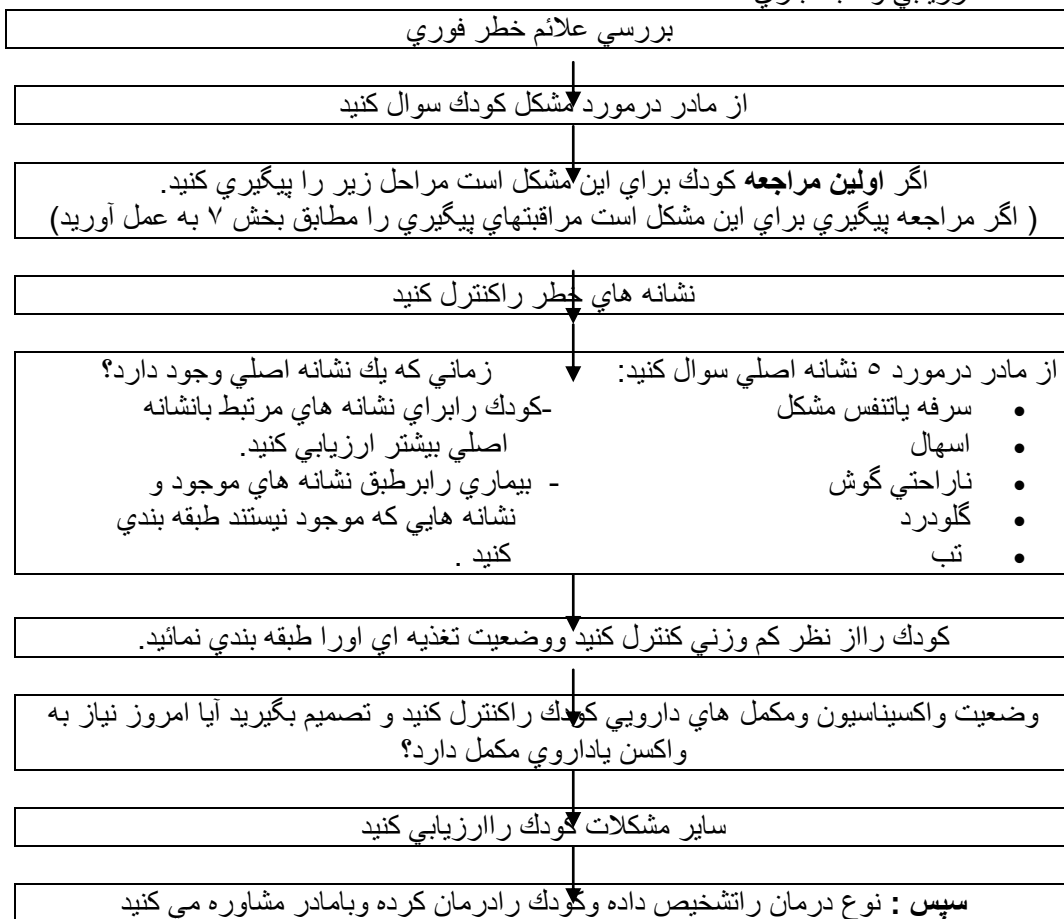 بررسي علائم خطر فوري
از مادر درمورد مشكل كودك سوال كنيد
اگر اولين مراجعه كودك براي اين مشكل است مراحل زير را پيگيري كنيد.
( اگر مراجعه پيگيري براي اين مشكل است مراقبتهاي پيگيري را مطابق بخش ٧ به عمل آوريد)
نشانه هاي خطر راكنترل كنيد
از مادر درمورد ٥ نشانه اصلي سوال كنيد:
• سرفه ياتنفس مشكل
• اسهال
• ناراحتي گوش
• گلودرد
• تب
زماني كه يك نشانه اصلي وجود دارد؟
-كودك رابراي نشانه هاي مرتبط بانشانه
اصلي بيشتر ارزيابي كنيد.
- بيماري رابرطبق نشانه هاي موجود و
نشانه هايي كه موجود نيستند طبقه بندي
كنيد .
كودك رااز نظر كم وزني كنترل كنيد ووضعيت تغذيه اي اورا طبقه بندي نمائيد.
وضعيت واكسيناسيون ومكمل هاي دارويي كودك راكنترل كنيد و تصميم بگيريد آيا امروز نياز به
واكسن ياداروي مكمل دارد؟
ساير مشكلات كودك راارزيابي كنيد
سپس : نوع درمان راتشخيص داده وكودك رادرمان كرده وبامادر مشاوره مي كنيد